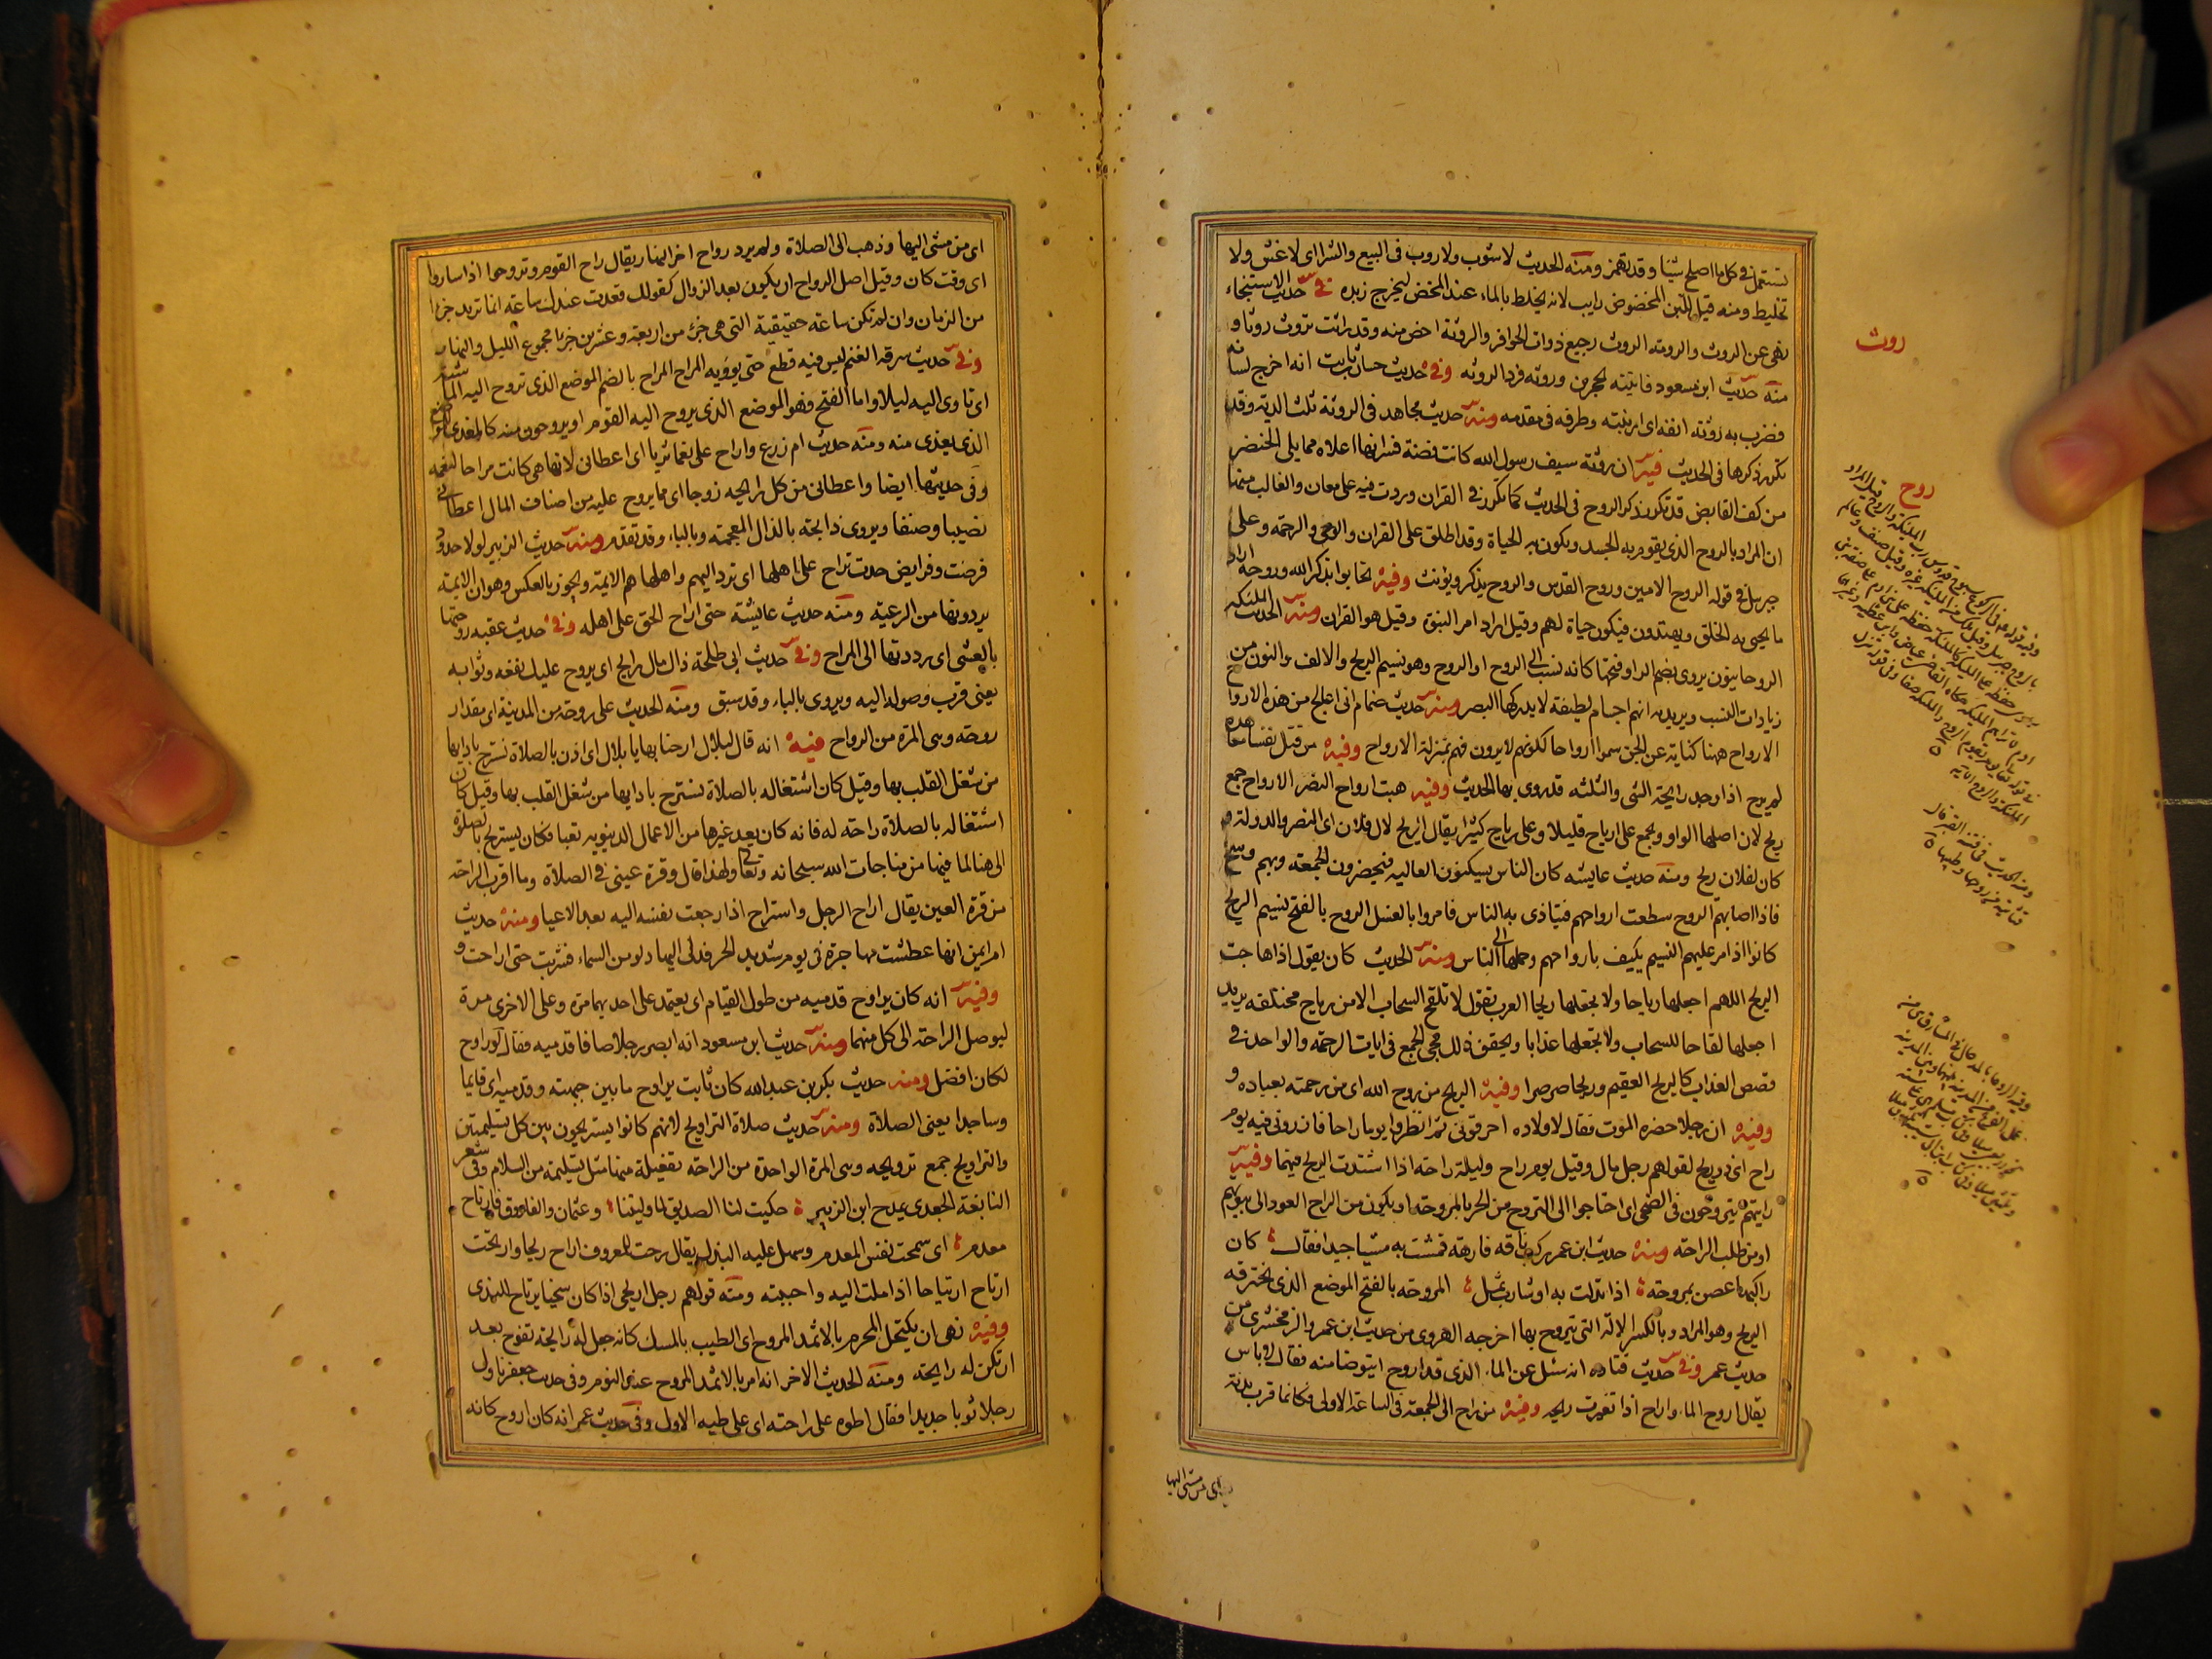 تستعمل في كل ما اصلح شيئا وقد تهمز ومنه الحديث لا شوب ولا روب في البيع والشرا اي لا غش ولا
تخليط ومنه قيل للبن الممخوض رايب لانه يخلط بالماء عند المخض ليخرج زبده في حديث الاستنجاء
روث
نهى عن الروث والرمة الروث رجيع ذوات الحوافر والروثة اخص منه وقد راثت تروث روثا و
منه حديث ابن مسعود فاتيته بحجرين وروثة فرد الروثه وفي حديث حسان بن ثابت انه اخرج لسانه
فضرب به روثة انفه اي ارنبته وطرفه في مقدمه ومنه حديث مجاهد في الروثة ثلث الدية وقد
تكرر ذكرها في الحديث فيه ان روثة سيف رسول الله كانت فضة فسر انها اعلاه مما يلي الخنصر
روح
من كف القابض قد تكرر ذكر الروح في الحديث كما تكرر في القران ووردت فيه على معان والغالب منها
ان المراد بالروح الذي يقوم به الجسد ويكون به الحياة وقد اطلق على القران والوحي والرحمة وعلى
جبريل في قوله الروح الامين وروح القدس والروح يذكر ويؤنث وفيه تحابوا بذكر الله وروحه اراد
ما يحيى به الخلق ويهتدون فيكون حياة لهم وقيل اراد امر النبوة وقيل هو القران ومنه الحديث الملئكه
الروحانيون يروى بضم الرا وفتحها كانه نسب الى الروح او الروح وهو نسيم الريح والالف والنون من
زيادات النسب ويريد به انهم اجسام لطيفة لا يدركها البصر ومنه حديث ضمام اني اعالج من هذه الارواح
الارواح ههنا كناية عن الجن سموا ارواحا لكونهم لا يرون فهم بمنزلة الارواح وفيه من قتل نفسا معاهدة
لم يرح اذا وجد رايحة الشي والثلثة قد روى بها الحديث وفيه هبت ارواح النصر الارواح جمع
ريح لان اصلها الواو ويجمع على ارياح قليلا وعلى رياح كثيرا يقال الريح لال فلان اي النصر والدولة و
كان لفلان ريح ومنه حديث عايشه كان الناس يسكنون العاليه فيحضرون الجمعة وبهم وسخ
فاذا اصابهم الروح سطعت ارواحهم فيتاذى به الناس فامروا بالغسل الروح بالفتح نسيم الريح
كانوا اذا مر عليهم النسيم يكيف بارواحهم وحملها الى الناس ومنه الحديث كان يقول اذا هاجت
الريح اللهم اجعلها رياحا ولا تجعلها ريحا العرب تقول لا تلقح السحاب الا من رياح مختلفه يريد
اجعلها لقاحا للسحاب ولا تجعلها عذابا ويحقق ذلك مجي الجمع في ايات الرحمة والواحد في
قصص العذاب كالريح العقيم وريحا صرصرا وفيه الريح من روح الله اي من رحمته بعباده و
وفيه ان رجلا حضره الموت فقال لاولاده احرقوني ثم انظروا يوما راحا فاذروني فيه يوم
راح اي ذو ريح لقولهم رجل مال وقيل يوم راح وليلة راحة اذا اشتدت الريح فيهما وفيه
رايتهم يتروحون في الضحى اي احتاجوا الى التروح من الحر بالمروحة او يكون من الراح العود الى بيوتهم
او من طلب الراحة ومنه حديث ابن عمر ركب ناقه فارهة فمشت به مشيا جيدا فقال كان
راكبها غصن بمروحة اذا تدلت به او شارب ثمل المروحة بالفتح الموضع الذي تخترقه
الريح وهو المراد وبالكسر الالة التي يتروح بها اخرجه الهروي من حديث ابن عمر والزمخشري من
حديث عمر وفي حديث قتاده انه سئل عن الماء الذي قد اروح ايتوضا منه فقال لا باس
يقال اروح الماء واراح اذا تغيرت ريحه وفيه من راح الى الجمعة في الساعة الاولى فكانما قرب بدنة
اي من مشى اليها
اي من مشى اليها وذهب الى الصلاة ولم يرد رواح اخر النهار يقال راح القوم وتروحوا اذا ساروا
اي وقت كان وقيل اصل الرواح ان يكون بعد الزوال كقولك قعدت عندك ساعة انما تريد جزا
من الزمان وان لم تكن ساعة حقيقية التي هي جزء من اربعة وعشرين جزءا مجموع الليل والنهار
وفي حديث سرقة الغنم ليس فيه قطع حتى يؤويه المراح المراح بالضم الموضع الذي تروح اليه الماشية
اي تاوي اليه ليلا واما الفتح فهو الموضع الذي يروح اليه القوم او يروحون منه كالمغدى الموضع
الذي يغدى منه ومنه حديث ام زرع واراح علي نعما ثريا اي اعطاني لانها هي كانت مراحا لنعمه
وفي حديثها ايضا واعطاني من كل رايحه زوجا اي مما يروح عليه من اصناف المال اعطاني
نصيبا وصنفا ويروى ذابحة بالذال المعجمة وبالباء وقد تقدم ومنه حديث الزبير لولا حدود
فرضت وفرايض حدت تراح على اهلها اي ترد اليهم واهلها هم الايمة ويجوز بالعكس وهو ان الايمة
يردونها من الرعية ومنه حديث عايشة حتى اراح الحق على اهله وفي حديث عقبه روحتها
بالعشي اي رددتها الى المراح وفي حديث ابي طلحة ذاك مال رايح اي يروح عليك نفعه وثوابه
يعني قرب وصوله اليه ويروى بالباء وقد سبق ومنه الحديث على روحة من المدينة اي مقدار
روحة وهي المرة من الرواح فيه انه قال لبلال ارحنا بها يا بلال اي اذن بالصلاة نسترح بادايها
من شغل القلب بها وقيل كان اشتغاله بالصلاة نسترح بادايها من شغل القلب بها وقيل كان
اشتغاله بالصلاة راحة له فانه كان يعد غيرها من الاعمال الدنيويه تعبا فكان يستريح بالصلوة
الى هنا لما فيها من مناجات الله سبحانه وتعالى ولهذا قال وقرة عيني في الصلاة وما اقرب الراحة
من قرة العين يقال اراح الرجل واستراح اذا رجعت نفسه اليه بعد الاعيا ومنه حديث
ام ايمن انها عطشت مهاجرة في يوم شديد الحر فدلى اليها دلو من السماء فشربت حتى اراحت و
وفيه انه كان يراوح قدميه من طول القيام اي يعتمد على احديهما مرة وعلى الاخرى مرة
ليوصل الراحة الى كل منهما ومنه حديث ابن مسعود انه ابصر رجلا صافا قدميه فقال لو راوح
لكان افضل ومنه حديث بكر بن عبد الله كان ثابت يراوح ما بين جبهته وقدميه اي قايما
وساجدا يعني الصلاة ومنه حديث صلاة التراويح لانهم كانوا يستريحون بين كل تسليمتين
والتراويح جمع ترويحه وهي المرة الواحدة من الراحة تفعيلة منها مثل تسليمة من السلام وفي شعر
النابغة الجعدي يمدح ابن الزبير حكيت لنا الصديق لما وليتنا وعثمان والفاروق فارتاح
معدم اي سمحت نفس المعدم وسهل عليه البذل يقال رحت للمعروف اراح ريحا وارتحت
ارتاح ارتياحا اذا ملت اليه واحببته ومنه قولهم رجل اريحي اذا كان سخيا يرتاح للندى
وفيه نهى ان يكتحل المحرم بالاثمد المروح اي الطيب بالمسك كانه جعل له رايحة تفوح بعد
ان تكن له رايحة ومنه الحديث الاخر انه امر بالاثمد المروح عند النوم وفي حديث جعفر ناول
رجلا ثوبا جديدا فقال اطوه على راحته اي على طيه الاول وفي حديث عمر انه كان اروح كانه